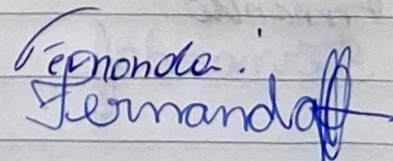 Fernanda.
Fernanda